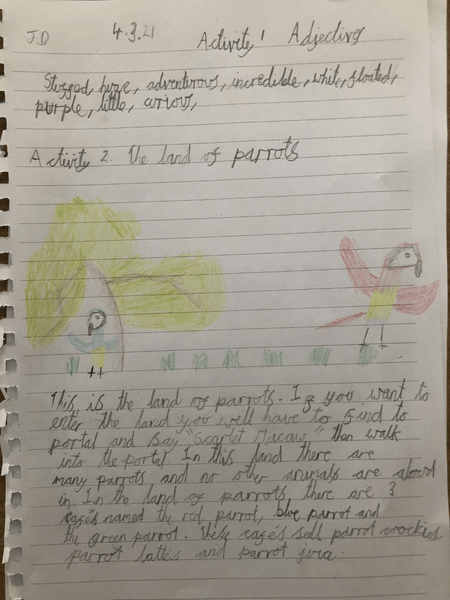 JD 4.3.21 Activity 1 Adjectivs
huge, adventerous, incredible, white, floated,
purple, little,
Activity 2. The land of parrots
This is the land of parrots. If you want to
enter the land you well have to find to
portal and Say "Scarlet Macaw" then walk
into the portal In this land there are
many parrots and no other animals are alowd
in In the land of parrots there are 3
cafe's named the red parrot, blue parrot and
the green parrot. These cafe's sell parrot coockies
parrot lattes and parrot juice.